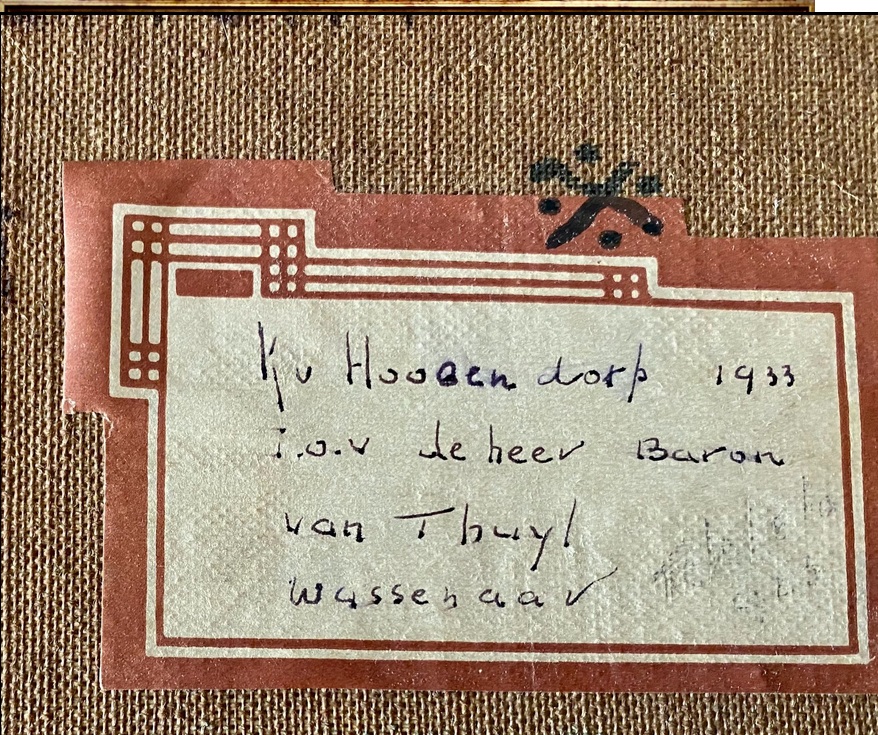 Kv Hoogendorp 1933
i.o.v de heer Baron
van Thuyl
Wassenaar